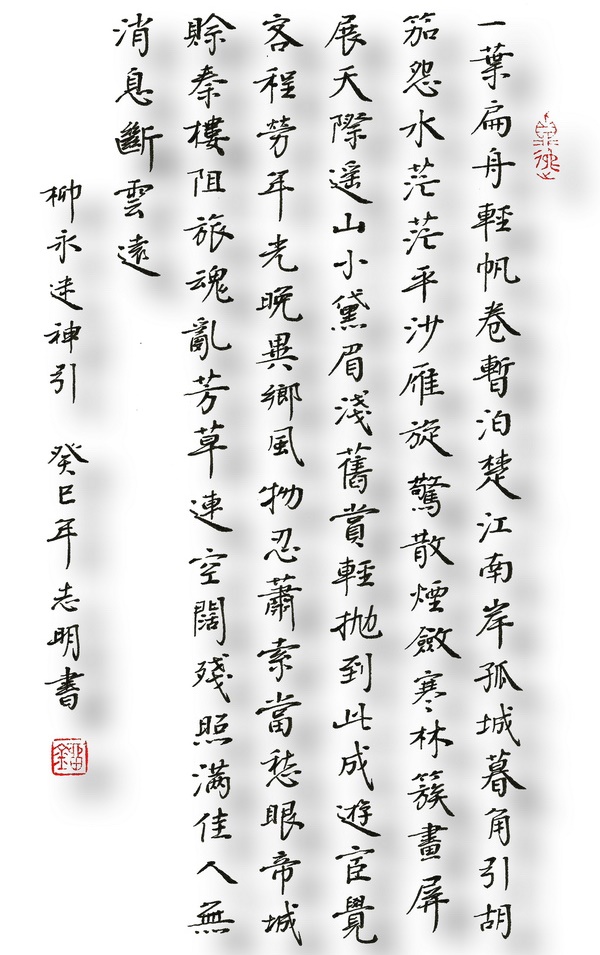 一葉扁舟輕帆卷暫泊楚江南岸孤城暮角引胡
笳怨水茫茫平沙雁旋驚散煙斂寒林簇畫屏
展天際遥山小黛眉淺舊賞輕抛到此成遊宦覺
客程勞年光晚異鄉風物忍蕭索當愁眼帝城
賒秦樓阻旅魂亂芳草連空闊殘照滿佳人無
消息斷雲遠
柳永迷神引 癸巳年志明書